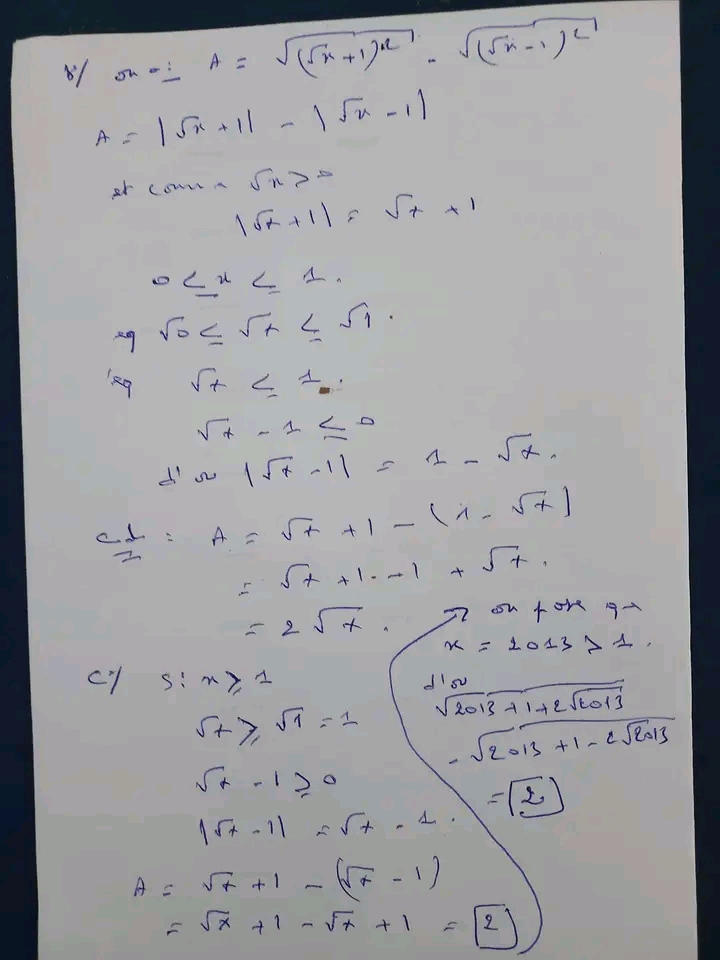 b/ on a: A = √((√x+1)²) - √((√x-1)²)
A = |√x+1| - |√x-1|
et comme √x ≥ 0
|√x+1| = √x+1
0 ≤ x ≤ 1.
eq √0 ≤ √x ≤ √1.
eq √x ≤ 1.
√x - 1 ≤ 0
d'où |√x-1| = 1 - √x.
cl : A = √x + 1 - (1 - √x)
= √x + 1 - 1 + √x.
= 2√x.
c/ si x ≥ 1
√x ≥ √1 = 1
√x - 1 ≥ 0
|√x-1| = √x - 1.
A = √x + 1 - (√x - 1)
= √x + 1 - √x + 1 = 2
on pose que
x = 2013 ≥ 1.
d'où
√(2013+1+2√2013)
- √(2013+1-2√2013)
= 2